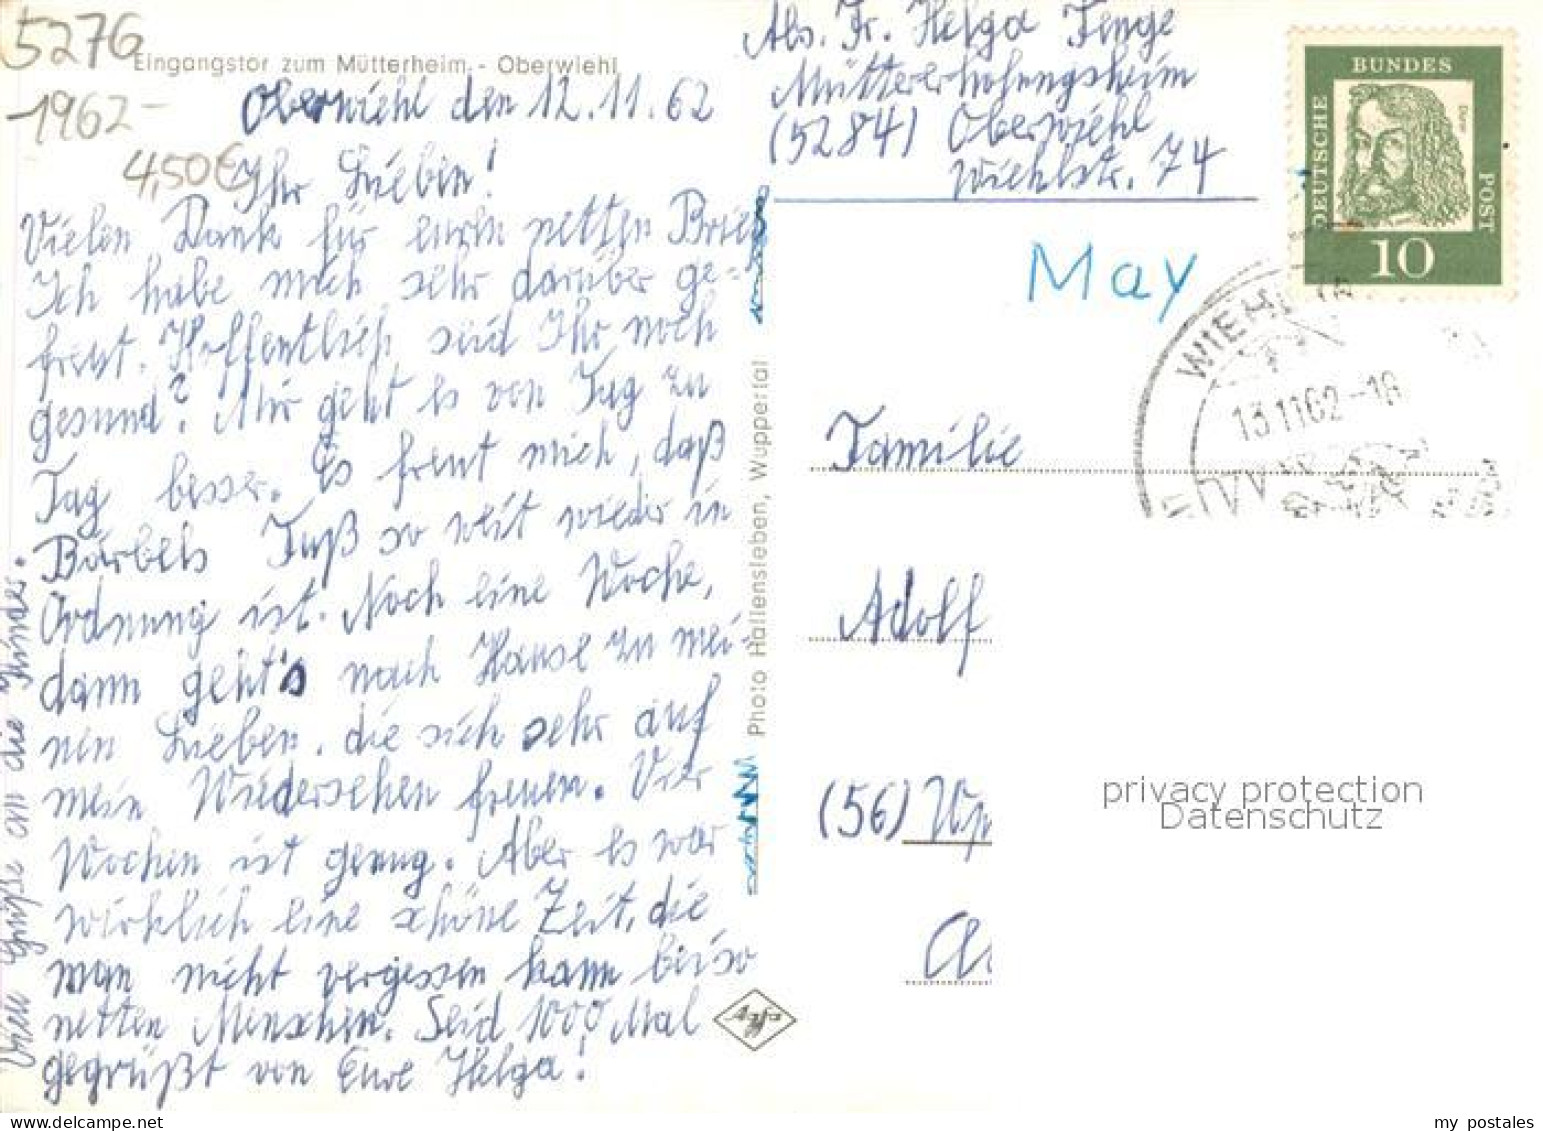 5276
1962-
4,50€
Eingangstor zum Mütterheim - Oberwiehl
Oberwiehl den 12.11.62
Ihr Lieben!
Vielen Dank für euren netten Brief
Ich habe mich sehr darüber ge-
freut. Hoffentlich seid Ihr noch
gesund? Mir geht es von Tag zu
Tag besser. Es freut mich, daß
Bärbels Fuß so weit wieder in
Ordnung ist. Noch eine Woche,
dann geht's nach Hause zu mei-
nen Lieben, die sich sehr auf
mein Wiedersehen freuen. Vier
Wochen ist genug. Aber es war
wirklich eine schöne Zeit, die
man nicht vergessen kann bei so
netten Menschen. Seid 1000 Mal
gegrüßt von Eure Helga!
Viele Grüße an die Kinder.
Photo Hallensleben, Wuppertal
Agfa
Abs. Fr. Helga Fenge
Müttererholungsheim
(5284) Oberwiehl
Wiehlstr. 74
May
DEUTSCHE
BUNDES
POST
Dürer
10
WIEHL
13.11.62-18
Familie
Adolf
(56) Wp
privacy protection
Datenschutz
my postales